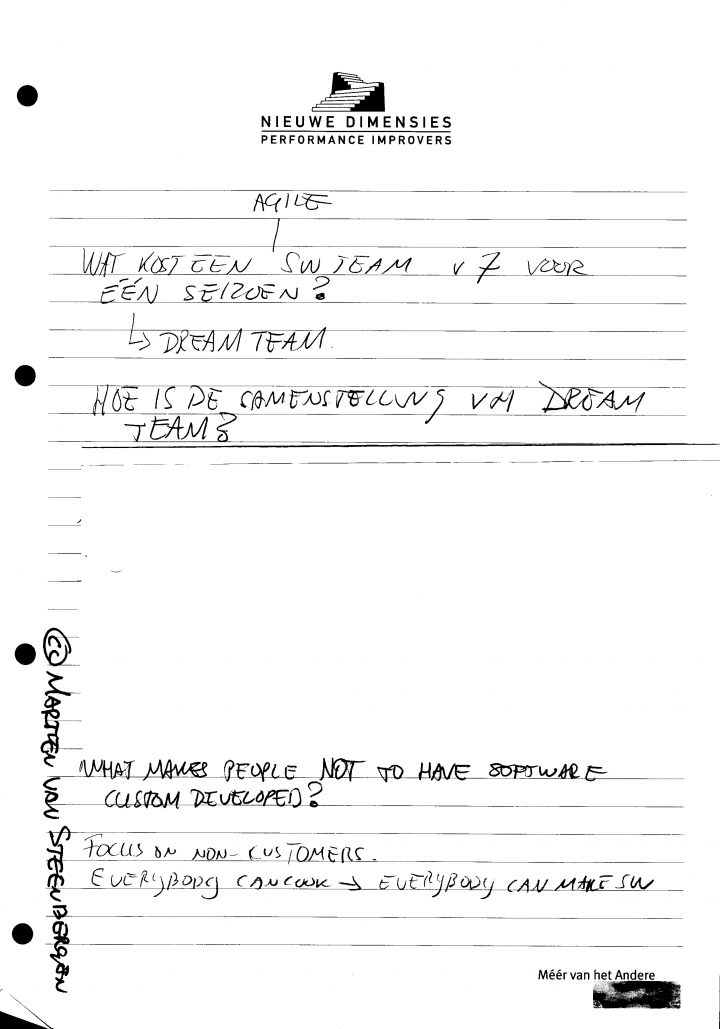 NIEUWE DIMENSIES
PERFORMANCE IMPROVERS
AGILE
WAT KOST EEN SW TEAM v 7 VOOR
ÉÉN SEIZOEN?
↳ DREAM TEAM.
HOE IS DE SAMENSTELLING VH DREAM
TEAM?
WHAT MAKES PEOPLE NOT TO HAVE SOFTWARE
CUSTOM DEVELOPED?
FOCUS ON NON-CUSTOMERS.
EVERYBODY CAN COOK → EVERYBODY CAN MAKE SW
(CC) MARTIEN VAN STEENBERGEN
Méér van het Andere